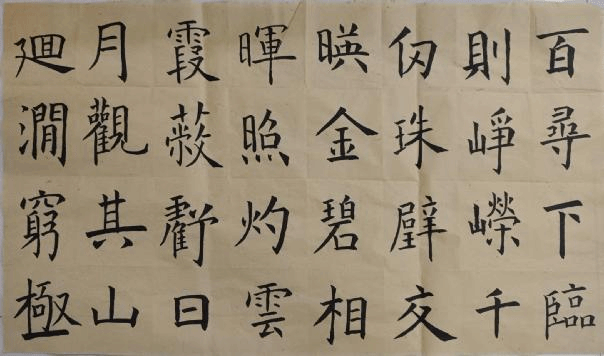 百尋下臨
則崢嶸千
仞珠璧交
暎金碧相
暉照灼雲
霞蔽虧日
月觀其山
廻澗窮極